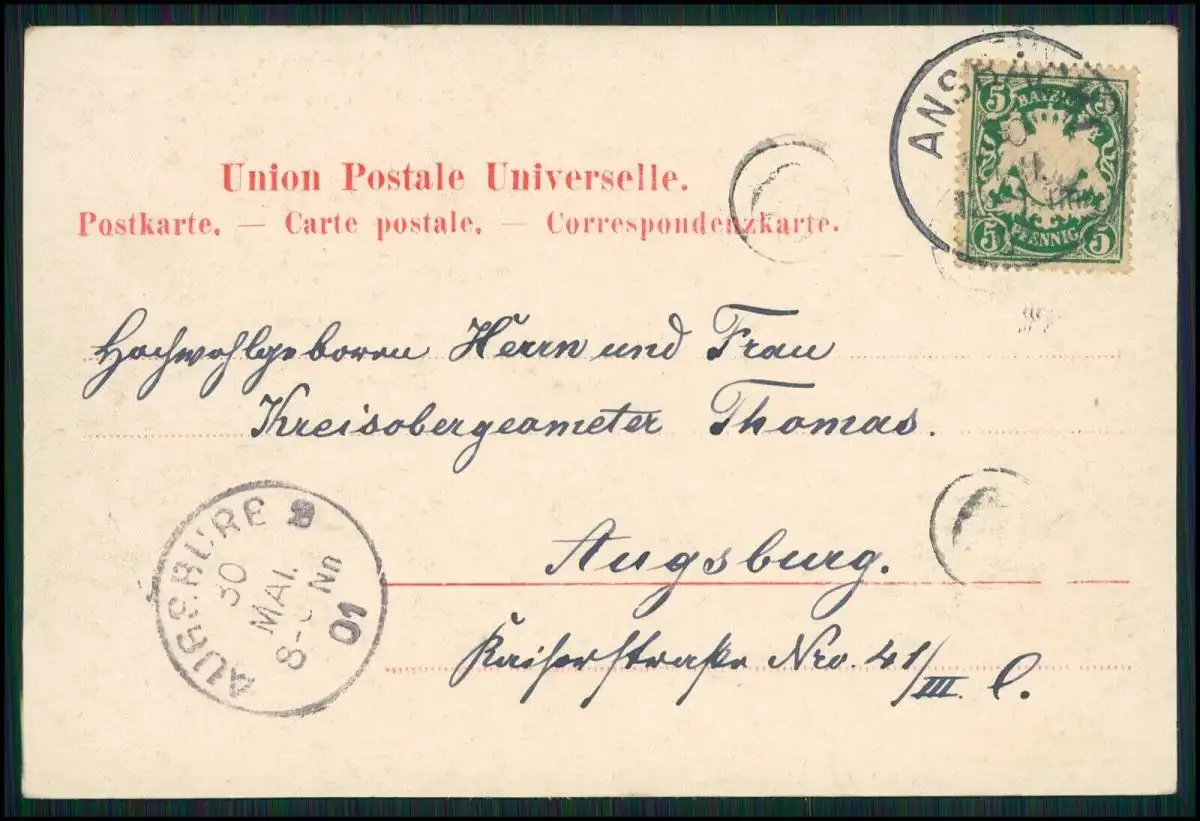 Union Postale Universelle.
Postkarte. — Carte postale. — Correspondenzkarte.
ANSBACH
5 5
BAYERN
5 PFENNIG 5
Hochwohlgeboren Herrn und Frau
Kreisobergeometer Thomas.
Augsburg.
Kaiserstraße Nro. 41/III. l.
AUGSBURG
30
MAI.
Nn
01